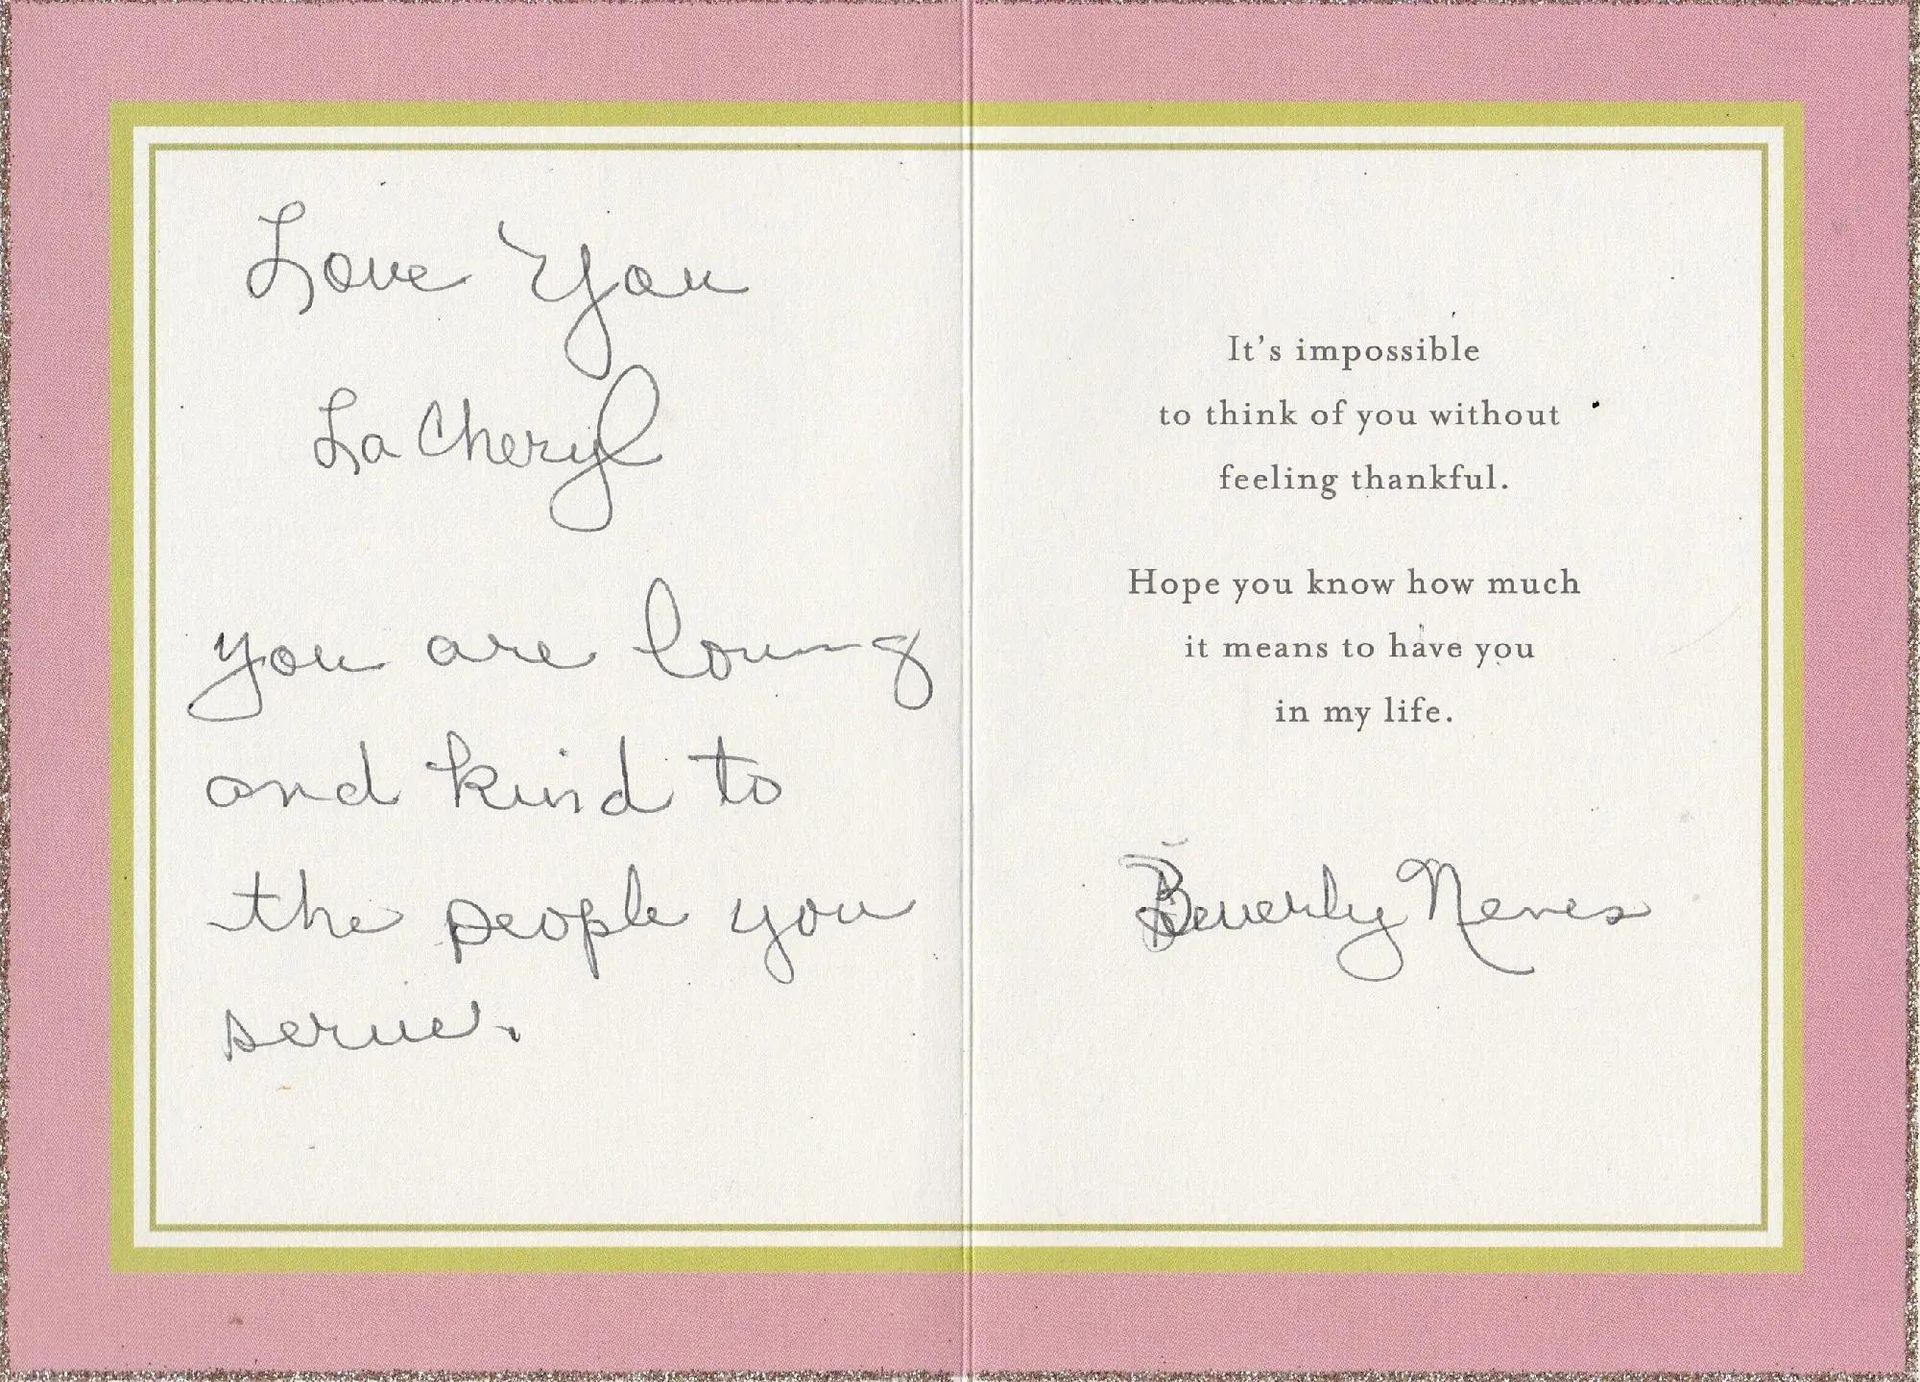 Love You
La Cheryl
you are loving
and kind to
the people you
serve.
It's impossible
to think of you without
feeling thankful.
Hope you know how much
it means to have you
in my life.
Beverly Neves